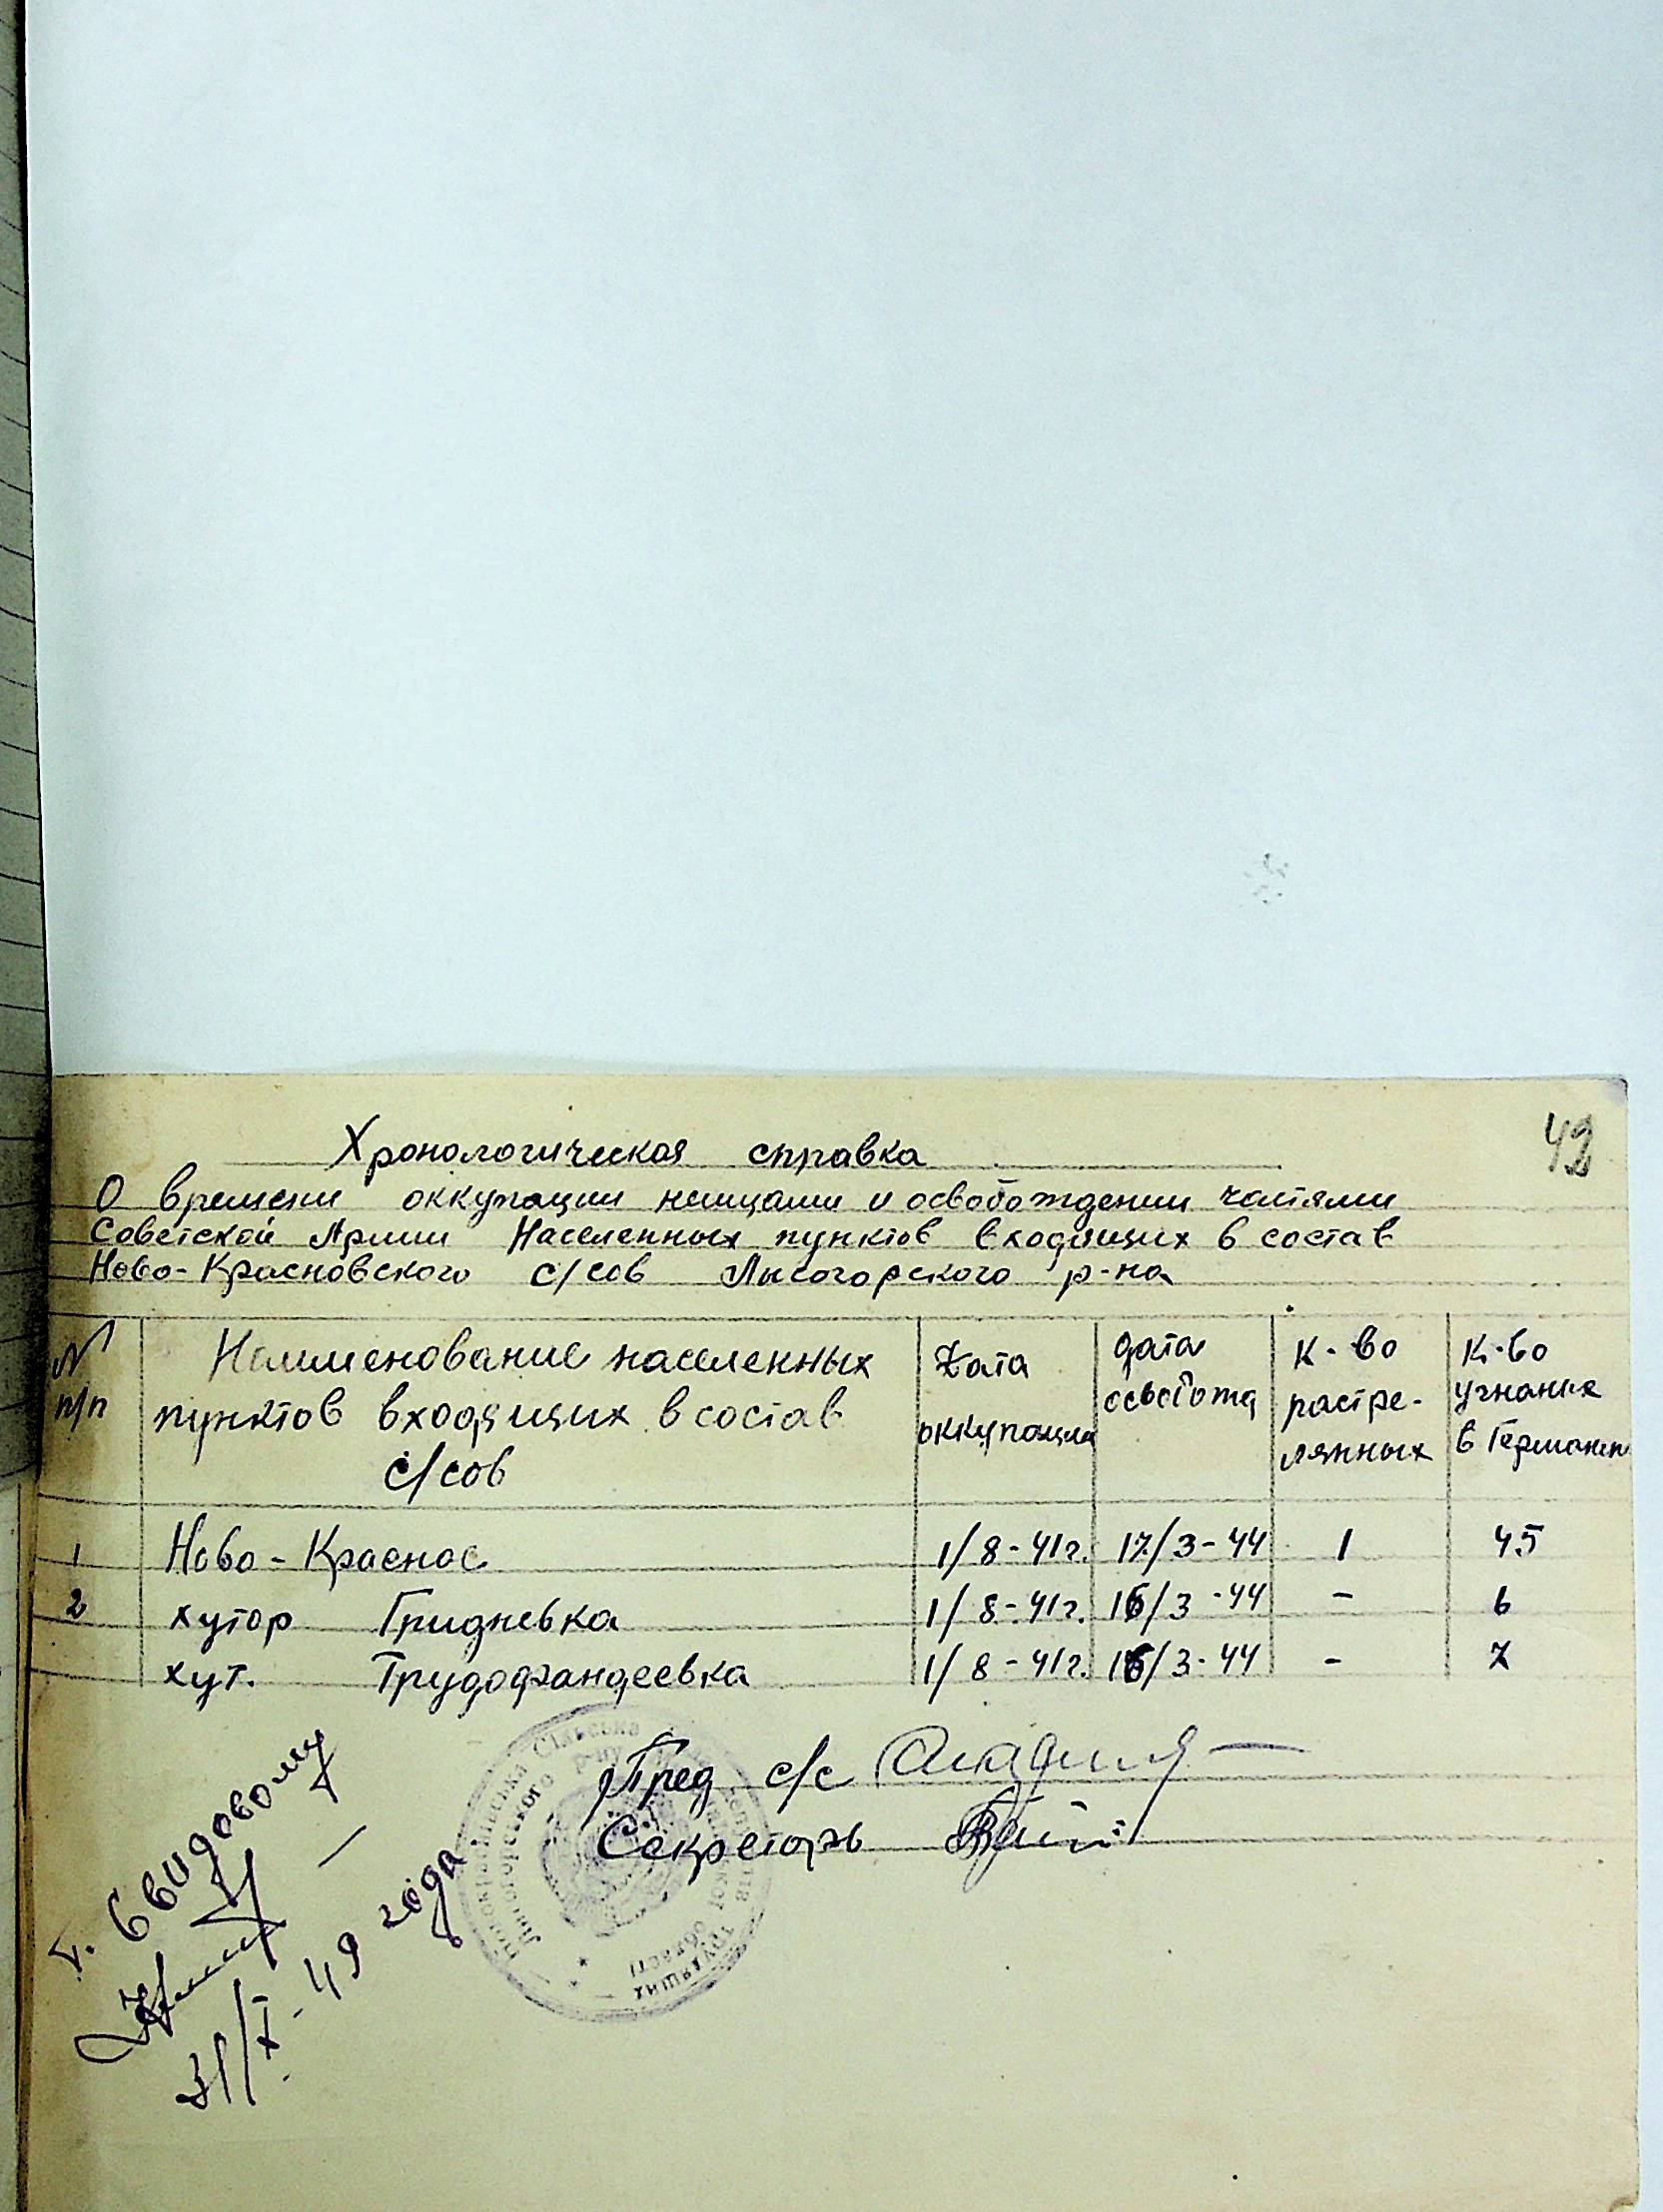 49
Хронологическая справка
О времени оккупации немцами и освобождении частями
Советской Армии Населенных пунктов входящих в состав
Ново-Красновского с/сов Лысогорского р-на
№ п/п
Наименование населенных пунктов входящих в состав с/сов
Дата оккупации
дата
К-во растре-лянных
К-во угнаных в Германию
1 Ново-Красное 1/8-41г. 17/3-44 1 45
2 хутор Гридневка 1/8-41г. 16/3-44 - 6
хут. 1/8-41г. 16/3-44 - 7
Пред с/с
Секретарь
т. Свидовому
31/X-49 года
Сільська
Лисогорського р-ну
депутатів трудящих
області